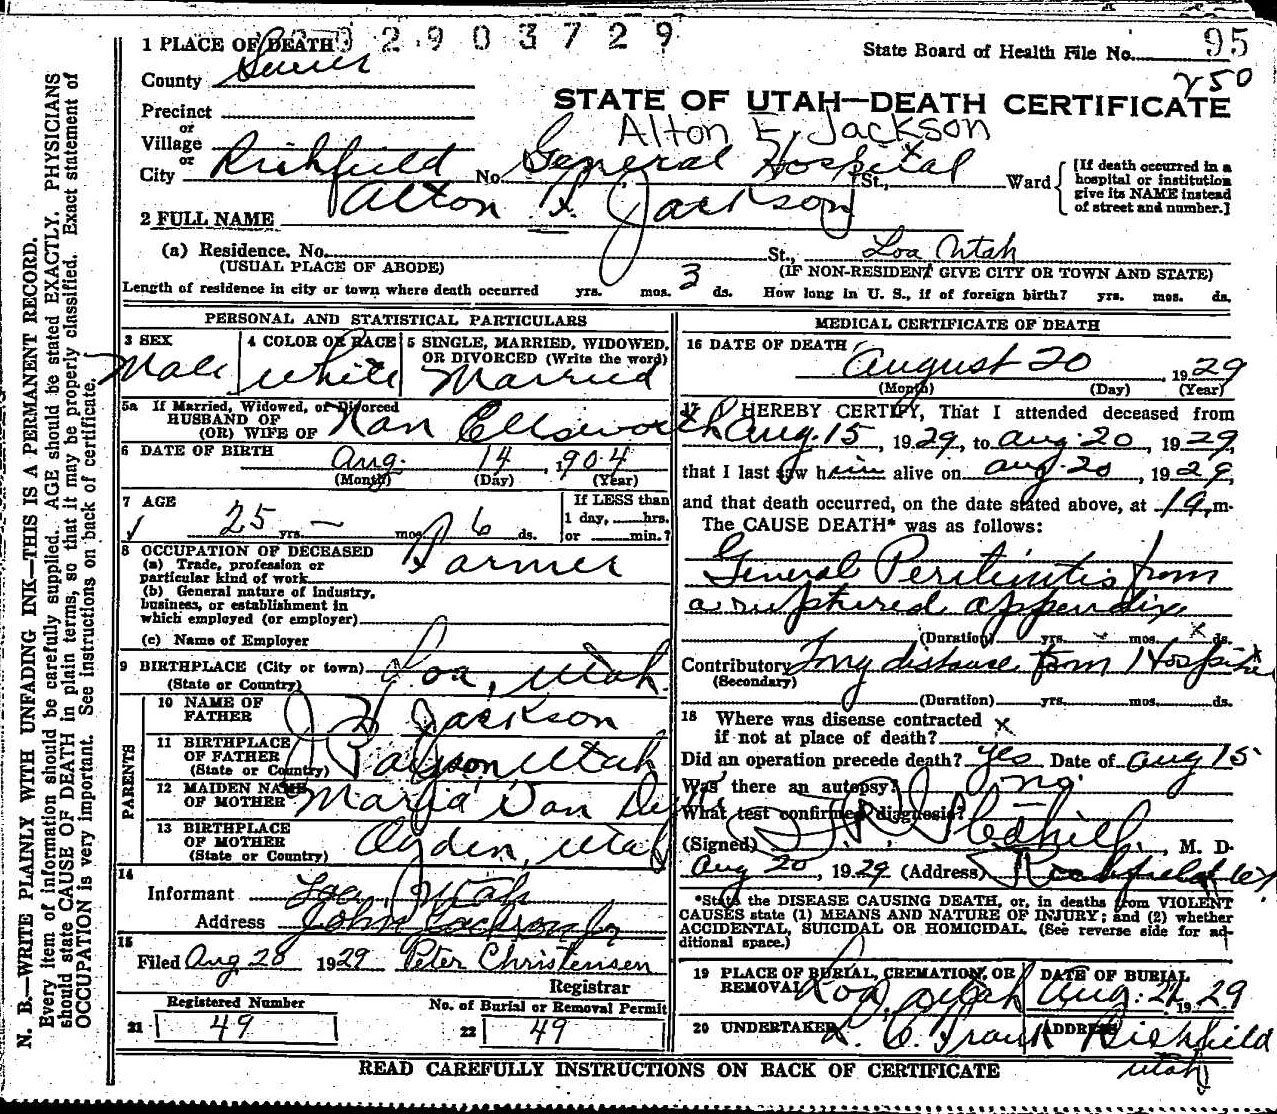 2903729
State Board of Health File No. 95
250
1 PLACE OF DEATH
County Sevier
STATE OF UTAH—DEATH CERTIFICATE
Precinct
or
Village
or
Alton F. Jackson
City Richfield No. General Hospital St., Ward
[If death occurred in a hospital or institution give its NAME instead of street and number.]
2 FULL NAME Alton F. Jackson
(a) Residence. No. St., Loa Utah
(USUAL PLACE OF ABODE) (IF NON-RESIDENT GIVE CITY OR TOWN AND STATE)
Length of residence in city or town where death occurred yrs. mos. 3 ds. How long in U. S., if of foreign birth? yrs. mos. ds.
PERSONAL AND STATISTICAL PARTICULARS
3 SEX Male
4 COLOR OR RACE White
5 SINGLE, MARRIED, WIDOWED, OR DIVORCED (Write the word) Married
5a If Married, Widowed, or Divorced
HUSBAND OF
(OR) WIFE OF Nan Ellsworth
6 DATE OF BIRTH Aug. 14, 1904
(Month) (Day) (Year)
7 AGE 25 yrs. — mos. 6 ds.
If LESS than
1 day, hrs.
or min.?
8 OCCUPATION OF DECEASED
(a) Trade, profession or
particular kind of work Farmer
(b) General nature of industry,
business, or establishment in
which employed (or employer)
(c) Name of Employer
9 BIRTHPLACE (City or town) Loa, Utah.
(State or Country)
PARENTS
10 NAME OF
FATHER J H Jackson
11 BIRTHPLACE
OF FATHER Payson Utah
(State or Country)
12 MAIDEN NAME
OF MOTHER Maria Van
13 BIRTHPLACE
OF MOTHER Ogden, Utah
(State or Country)
14
Informant Loa, Utah
Address John
15
Filed Aug 28 1929 Peter Christensen
Registrar
Registered Number
21 49
No. of Burial or Removal Permit
22 49
MEDICAL CERTIFICATE OF DEATH
16 DATE OF DEATH August 20, 1929
(Month) (Day) (Year)
17 I HEREBY CERTIFY, That I attended deceased from
Aug. 15, 1929, to Aug. 20, 1929,
that I last saw him alive on Aug. 20, 1929,
and that death occurred, on the date stated above, at 1 a. m.
The CAUSE DEATH* was as follows:
General Peritinitis from
a ruptured appendix
(Duration) yrs. mos. ds.
Contributory Long distance from Hospital
(Secondary)
(Duration) yrs. mos. ds.
18 Where was disease contracted
if not at place of death? x
Did an operation precede death? yes Date of Aug 15
Was there an autopsy? no
What test confirmed diagnosis? —
(Signed) , M. D.
Aug 20, 1929 (Address) Richfield Ut
*State the DISEASE CAUSING DEATH, or, in deaths from VIOLENT
CAUSES state (1) MEANS AND NATURE OF INJURY; and (2) whether
ACCIDENTAL, SUICIDAL OR HOMICIDAL. (See reverse side for ad-
ditional space.)
19 PLACE OF BURIAL, CREMATION, OR
REMOVAL Loa, Utah
DATE OF BURIAL
Aug. 21, 1929
20 UNDERTAKER L. C. Frank
ADDRESS Richfield
Utah
READ CAREFULLY INSTRUCTIONS ON BACK OF CERTIFICATE
N. B.—WRITE PLAINLY WITH UNFADING INK—THIS IS A PERMANENT RECORD.
Every item of information should be carefully supplied. AGE should be stated EXACTLY. PHYSICIANS
should state CAUSE OF DEATH in plain terms, so that it may be properly classified. Exact statement of
OCCUPATION is very important. See instructions on back of certificate.